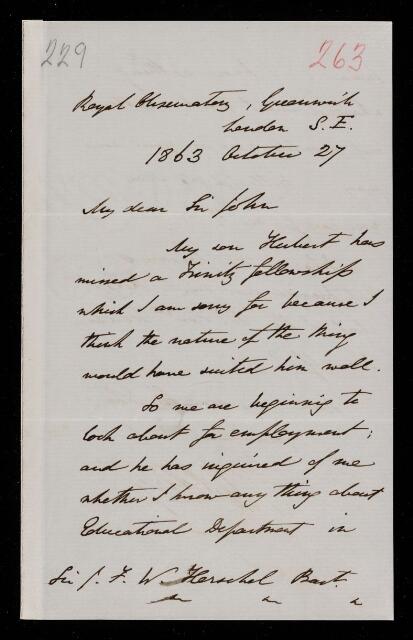 229
263
Royal Observatory, Greenwich
London S.E.
1863 October 27
My dear Sir John
My son Hubert has
missed a Trinity fellowship
which I am sorry for because I
think the nature of the thing
would have suited him well.
So we are beginning to
look about for employment;
and he has inquired of me
whether I know any thing about
Educational Department in
Sir J. F. W Herschel Bart.